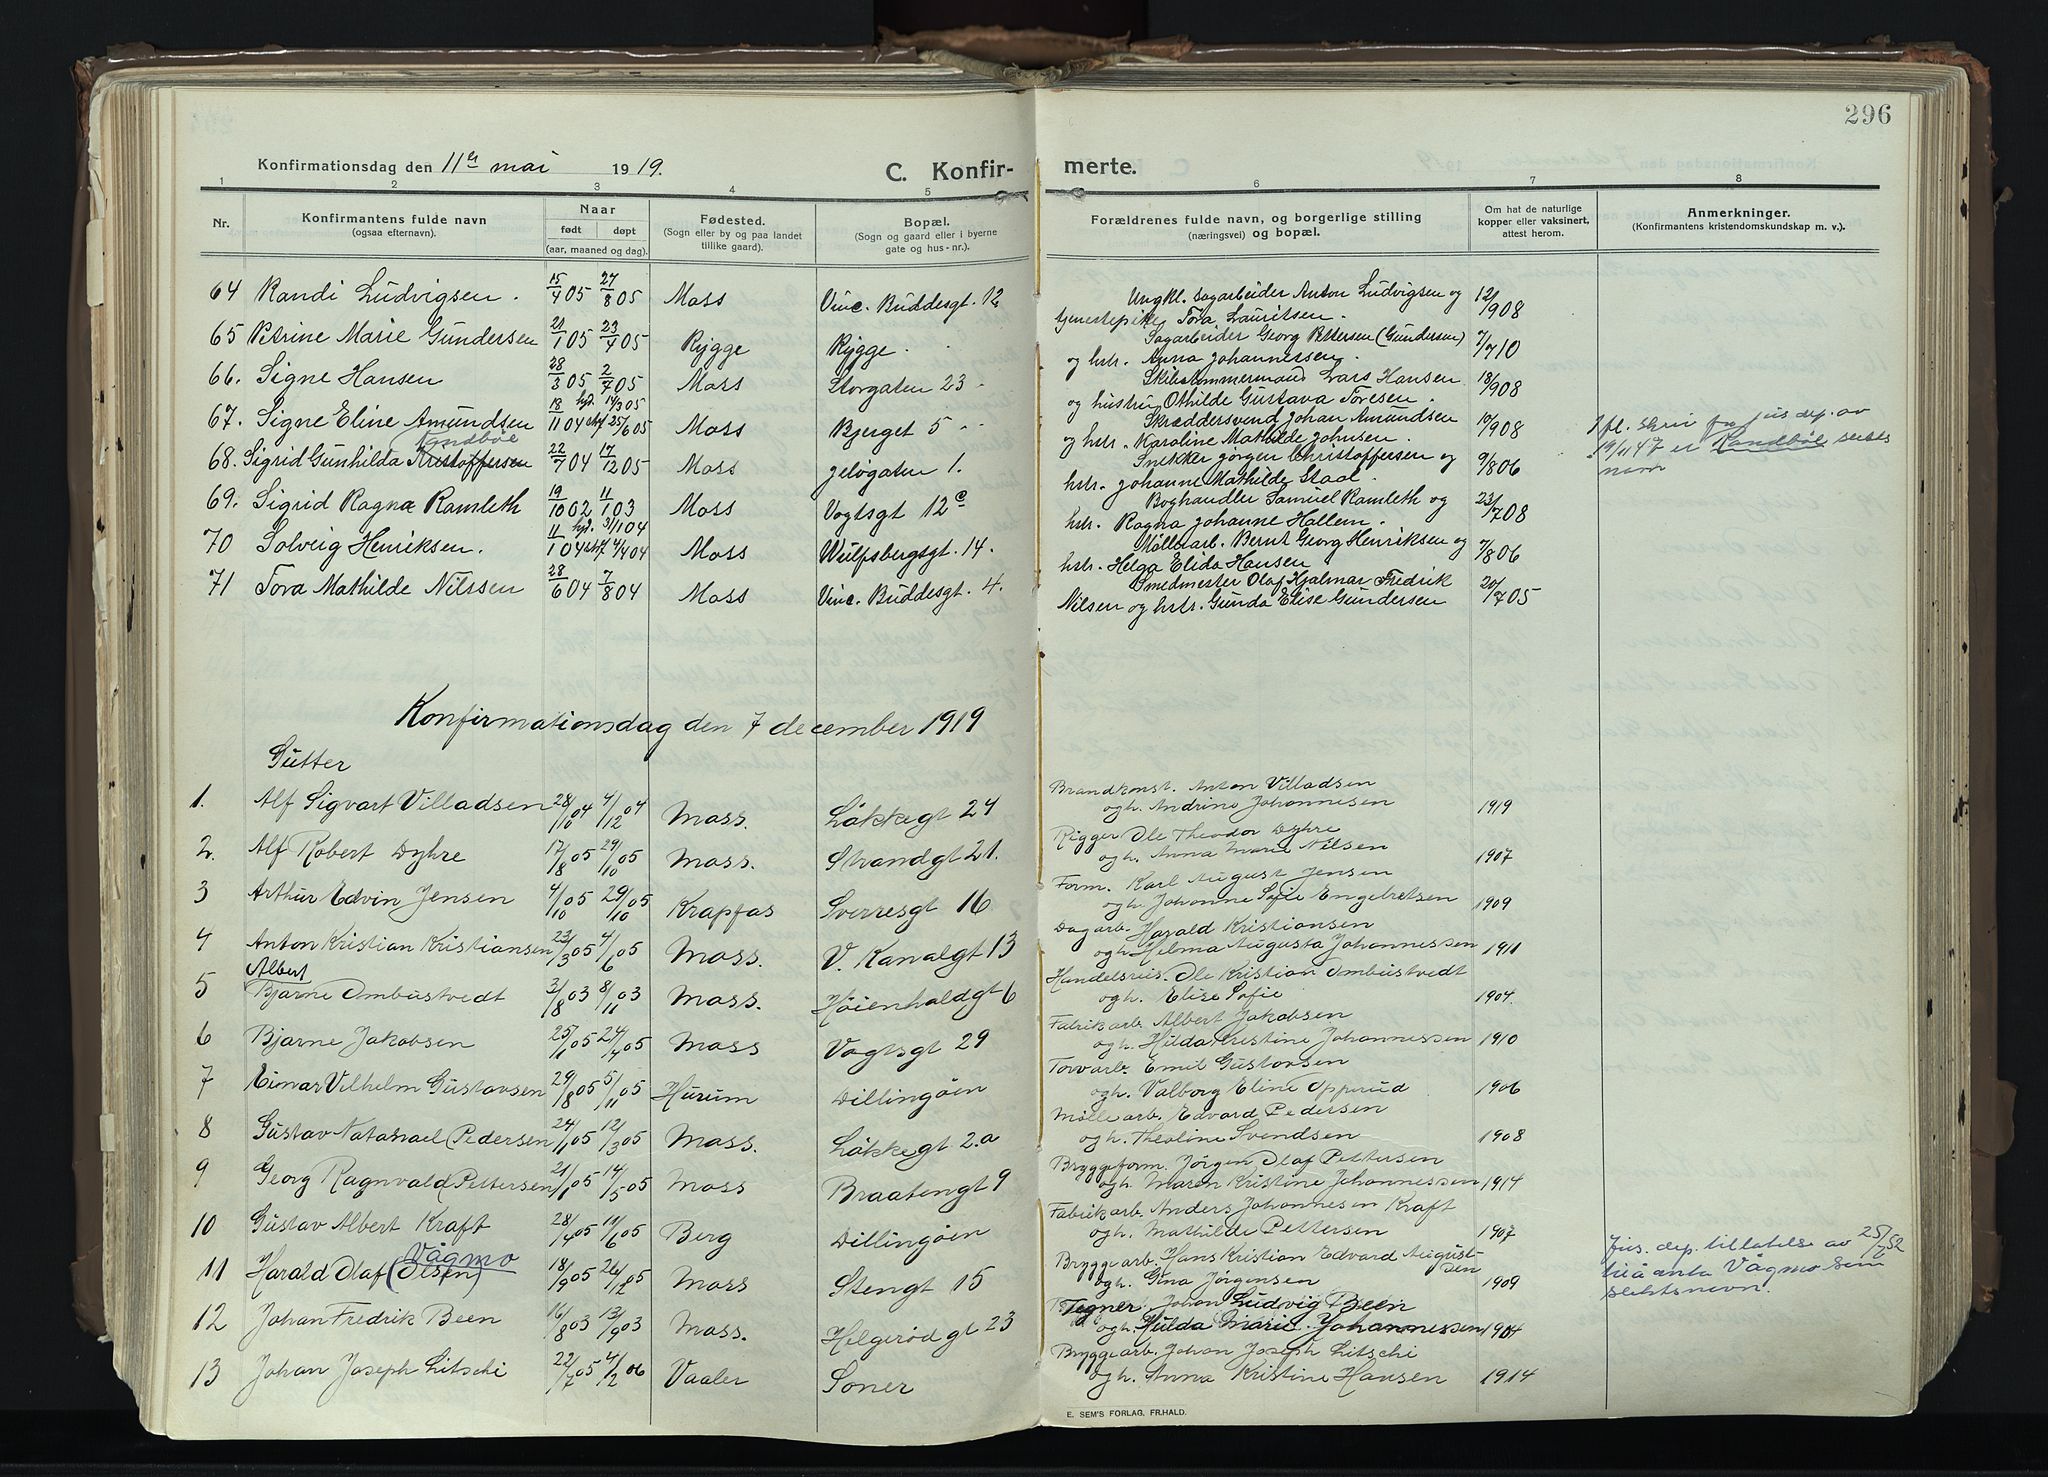 296
Konfirmationsdag den 11te mai 1919. C. Konfir- merte.
1 2 3 4 5 6 7 8
Nr. Konfirmantens fulde navn (ogsaa efternavn). Naar født døpt (aar, maaned og dag). Fødested. (Sogn eller by og paa landet tillike gaard). Bopæl. (Sogn og gaard eller i byerne gate og hus-nr.). Forældrenes fulde navn, og borgerlige stilling (næringsvei) og bopæl. Om hat de naturlige kopper eller vaksinert, attest herom. Anmerkninger. (Konfirmantens kristendomskundskap m. v.).
64 Randi Ludvigsen. 15/4 05 27/8 05 Moss Vinc. Buddesgt. 12 Ungkl. Sagarbeider Anton Ludvigsen og 12/908
tjenestepike Tora Lauritsen.
65 Petrine Marie Gundersen 21/1 05 23/4 05 Rygge Rygge. Sagarbeider Georg Pettersen (Gundersen) 7/710
og hstr. Anna Johannessen.
66. Signe Hansen 28/3 05 2/7 05 Moss Storgaten 23 Skibstømmermand Lars Hansen 18/908
og hustru Othilde Gustava Toresen.
67. Signe Eline Amundsen 18/11 04 hjd. 14/3 05 stkf 25/6 05 Moss Bjerget 5 Skræddersvend Johan Amundsen 19/908
og hstr. Karoline Mathilde Johnsen.
Sandbøe
68. Sigrid Gunhilda Kristoffersen 22/7 04 17/12 05 Moss Jeløgaten 1. Snekker Jørgen Christoffersen og 9/806
hstr. Johanne Mathilde Staal.
19/11 47 er Sandbøe
navn
69. Sigrid Ragna Ramleth 19/10 02 11/1 03 Moss Vogtsgt 12c Boghandler Samuel Ramleth og 23/708
hstr. Ragna Johanne Hallem.
70 Solveig Henriksen. 11/1 04 hjd. 31/1 04 stkf 4/4 04 Moss Wulfsbergsgt. 14. Møllearb. Bernt Georg Henriksen og 7/806
hstr. Helga Elida Hansen
71 Tora Mathilde Nilssen 28/6 04 7/8 04 Moss Vinc. Buddesgt. 4. Smedmester Olaf Hjalmar Fredrik 20/705
Nilsen og hstr. Gunda Elise Gundersen
Konfirmationsdag den 7 december 1919
Gutter
1. Alf Sigvart Villadsen 28/10 04 4/12 04 Moss. Løkkegt 24 Brandkonst. Anton Villadsen
og h. Andrine Johannesen 1919
2. Alf Robert Dyhre 17/8 05 29/10 05 Moss. Strandgt 21. Rigger Ole Theodor Dyhre
og h. Anna Marie Nilsen 1907
3 Arthur Edvin Jensen 4/10 05 29/10 05 Krapfos Sverresgt 16 Form. Karl August Jensen
og h. Johanne Sofie Engebretsen 1909
4 Anton Kristian Kristiansen 23/3 05 4/6 05 Moss. V. Kanalgt 13 Dagarb. Harald Kristiansen
og h. Helma Augusta Johannessen 1911
Albert
5 Bjarne Ombustvedt 3/8 03 8/11 03 Moss. Høienhaldgt 6 Handelsreis. Ole Kristian Ombustvedt
og h. Elise Sofie 1904.
6 Bjarne Jakobsen 25/1 05 24/4 05 Moss Vogtsgt 29 Fabrikarb. Albert Jakobsen
og h. Hilda Kristine Johannessen 1910
7 Eimar Vilhelm Gustavsen 29/8 05 5/11 05 Hurum Dillingøen Torvarb. Emil Gustavsen
og h. Valborg Eline Opperud 1906
8 Gustav Natanael Pedersen 24/1 05 12/3 05 Moss. Løkkegt 2.a Møllearb. Edvard Pedersen
og h. Theoline Svendsen 1908
9 Georg Ragnvald Pettersen 21/1 05 14/5 05 Moss Braatengt 9 Bryggeform. Jørgen Olaf Pettersen
og h. Maren Kristine Johannessen 1914
10 Gustav Albert Kraft 28/4 05 11/6 05 Berg Dillingøen Fabrikarb. Anders Johannesen Kraft
og h. Mathilde Pettersen 1907
Vågmo
11 Harald Olaf (Olsen) 18/9 05 26/12 05 Moss Stengt 15 Bryggearb. Hans Kristian Edvard August-
sen
og h. Gina Jørgensen 1909
Jus. dep. tillatelse av 25/6 52
til å anta Vågmo som
slektsnavn.
12 Johan Fredrik Been 16/8 03 13/9 03 Moss. Helgerødgt 23 Tegner Johan Ludvig Been
og h. Hulda Marie Johannessen 1904
13 Johan Joseph Litschi 22/7 05 4/2 06 Vaaler Soner Bryggearb. Johan Joseph Litschi
og h. Anna Kristine Hansen 1914
E. SEM'S FORLAG, FR.HALD.